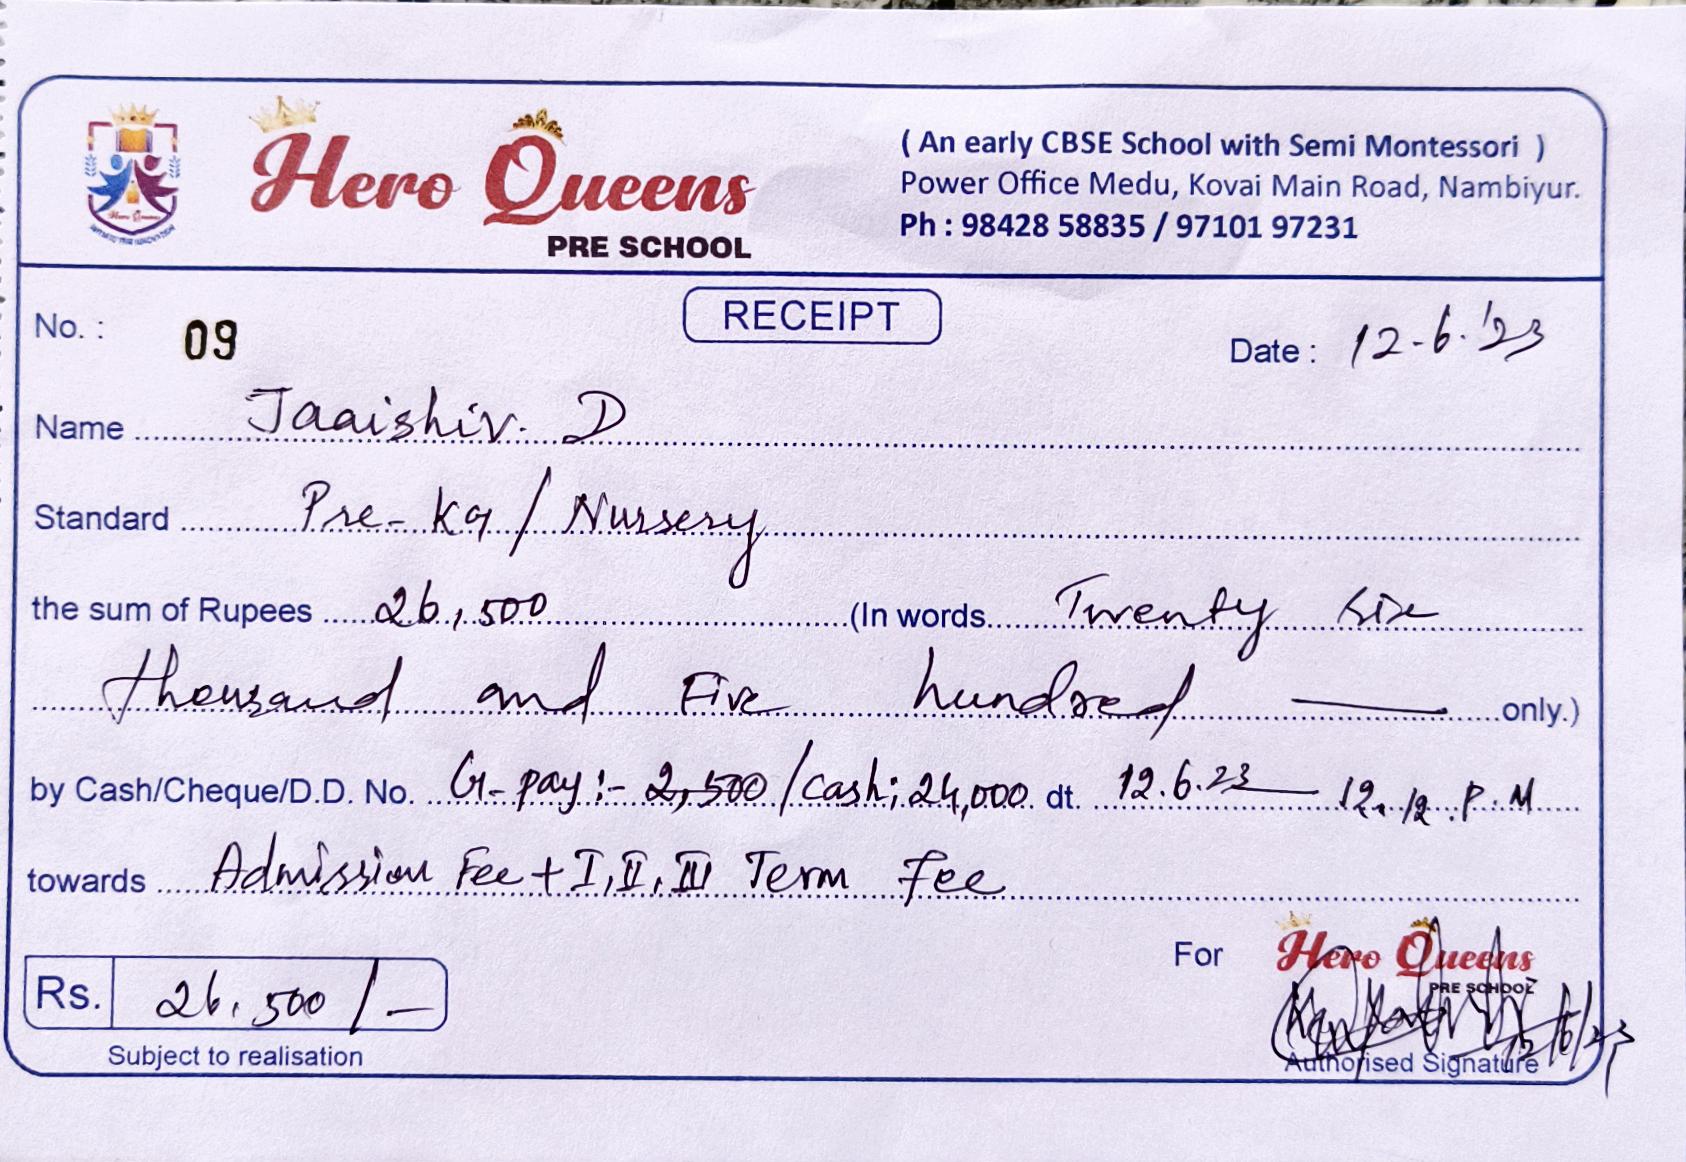 Hero Queens
PRE SCHOOL
( An early CBSE School with Semi Montessori )
Power Office Medu, Kovai Main Road, Nambiyur.
Ph : 98428 58835 / 97101 97231
RECEIPT
No. : 09
Date : 12-6-'23
Name Jaaishiv. D
Standard Pre-KG / Nursery
the sum of Rupees 26,500 (In words Twenty six
thousand and Five hundred — only.)
by Cash/Cheque/D.D. No. G-pay:- 2,500 / Cash; 24,000 dt. 12.6.23 — 12.12 P.M
towards Admission Fee + I, II, III Term Fee
For Hero Queens
PRE SCHOOL
Rs. 26,500/-
12/6/23
Subject to realisation
Authorised Signature